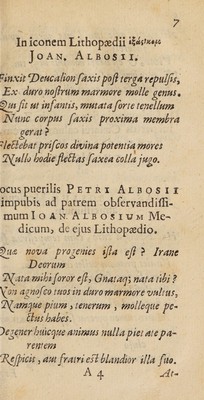 7
In iconem Lithopædii
JOAN. ALBOSII.
Finxit Deucalion saxis post terga repulsis,
Ex duro nostrum marmore molle genus.
Qui fit ut infantis, mutata sorte tenellum
Nunc corpus saxis proxima membra
gerat?
Flectebat priscos divina potentia mores
Nullo hodie flectas saxea colla jugo.
ocus puerilis PETRI ALBOSII
impubis ad patrem observandissi-
mum IOAN. ALBOSIUM Me-
dicum, de ejus Lithopædio.
Quæ nova progenies ista est? Irane
Deorum
Nata mihi soror est, Gnataq; nata tibi?
Non agnosco tuos in duro marmore vultus,
Namque pium, tenerum, molleque pe-
ctus habes.
Degener huicque animus nulla pietate pa-
rentem
Respicis, aut fratri est blandior illa suo.
A 4
At-